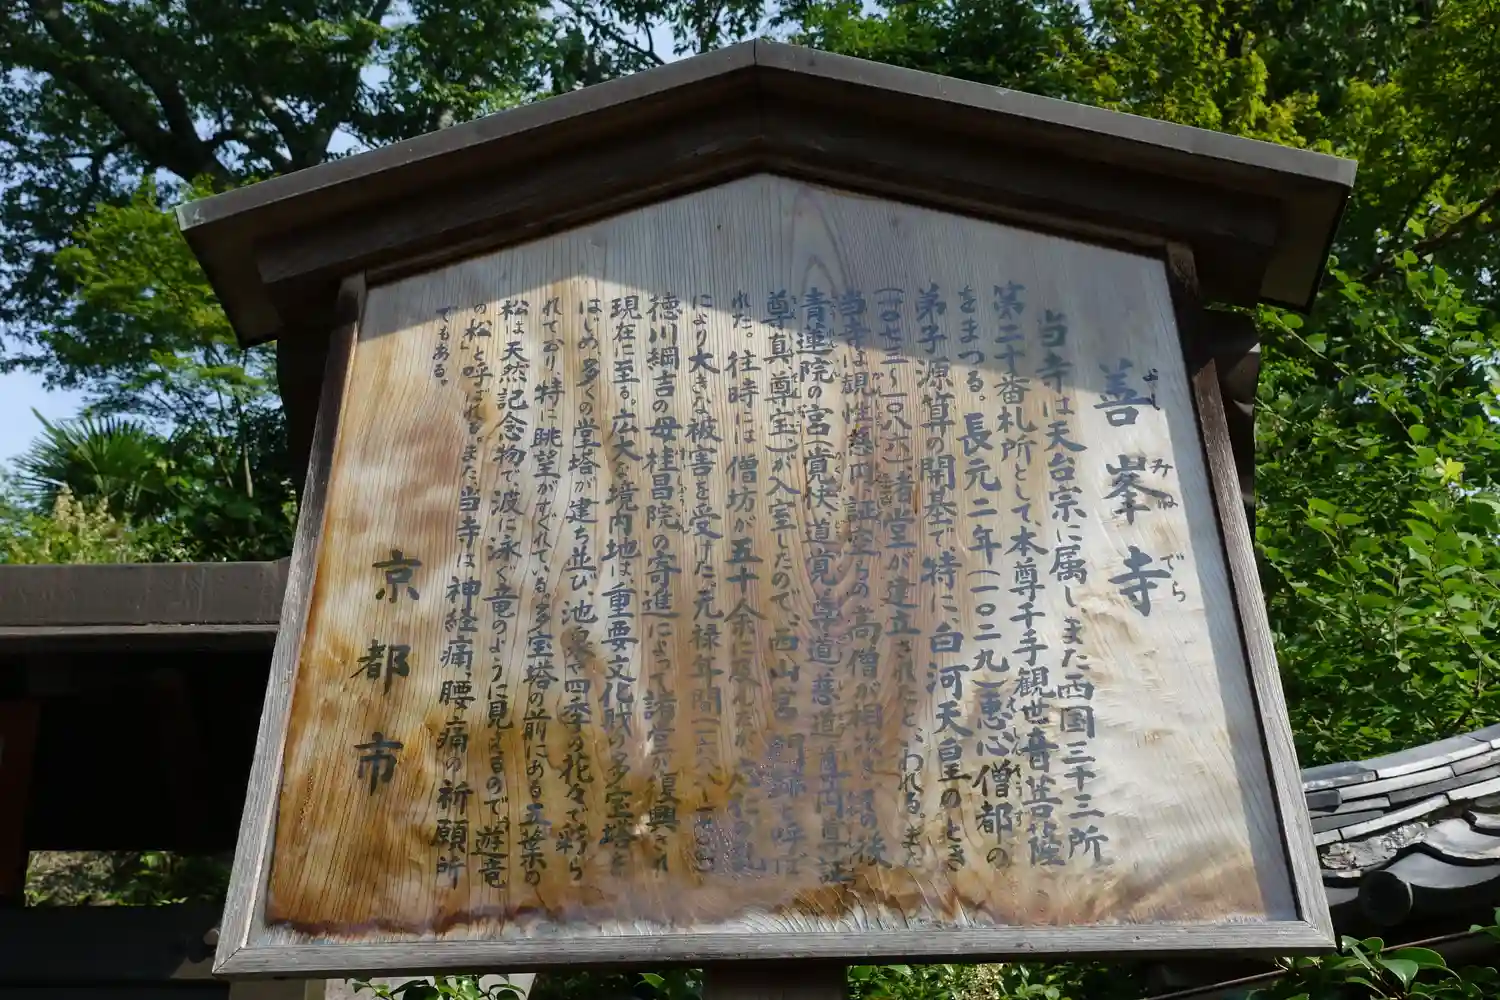 善峯寺
よし みね でら
当寺は天台宗に属し、また西国三十三所
第二十番札所として、本尊千手観世音菩薩
をまつる。長元二年(一〇二九)恵心僧都の
弟子源算の開基で特に、白河天皇のとき
(一〇七三〜一〇八六)諸堂が建立されたといわれる。また
当寺は観性、慈円、証空らの高僧が相
青蓮院の宮(覚快、道覚、尊道、慈道、尊円、尊証
尊真、尊宝、)が入室したので、西山宮門跡と呼ば
れた。往時には僧坊が五十余に及んだが、応仁の乱
により大きな被害を受けた。元禄年間
徳川綱吉の母桂昌院の寄進によって諸堂が復興され
現在に至る。広大な境内地は、重要文化財の多宝塔を
はじめ多くの堂塔が建ち並び、池泉や四季の花々で彩ら
れており、特に眺望がすぐれている。多宝塔の前にある五葉の
松は天然記念物で波に泳ぐ竜のように見えるので、遊竜
の松と呼ばれる。また、当寺は神経痛、腰痛の祈願所
でもある。
京都市